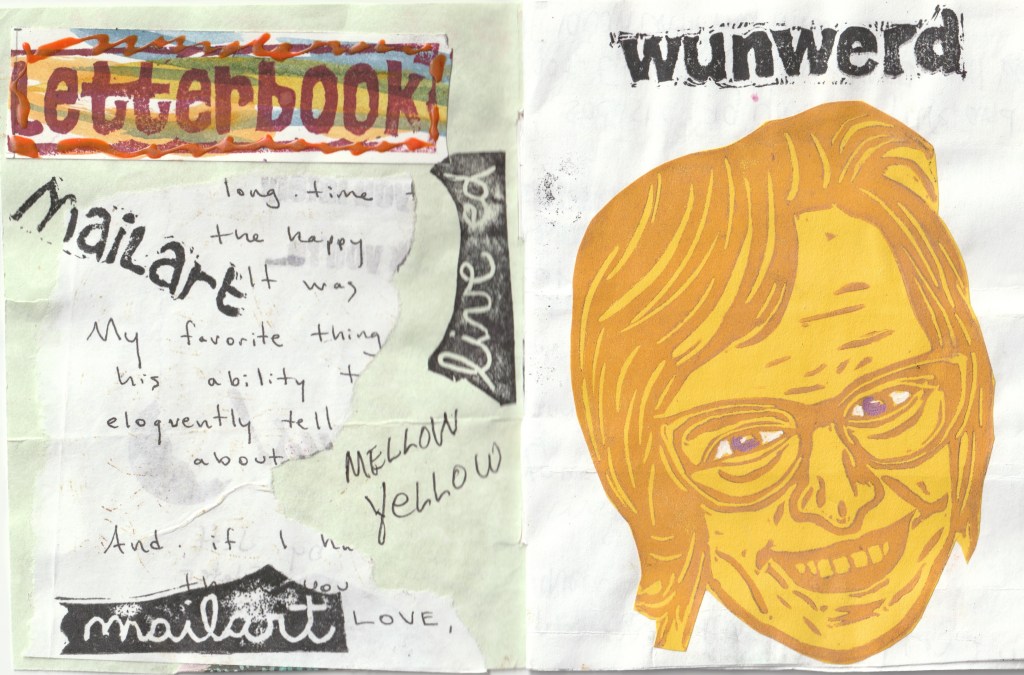 Letterbook
mailart
long time t
the happy
It was
My favorite thing
his ability t
eloquently tell
about
And if I ha
you
LOVE,
mailart
live ed
MELLOW
YELLOW
wunwerd